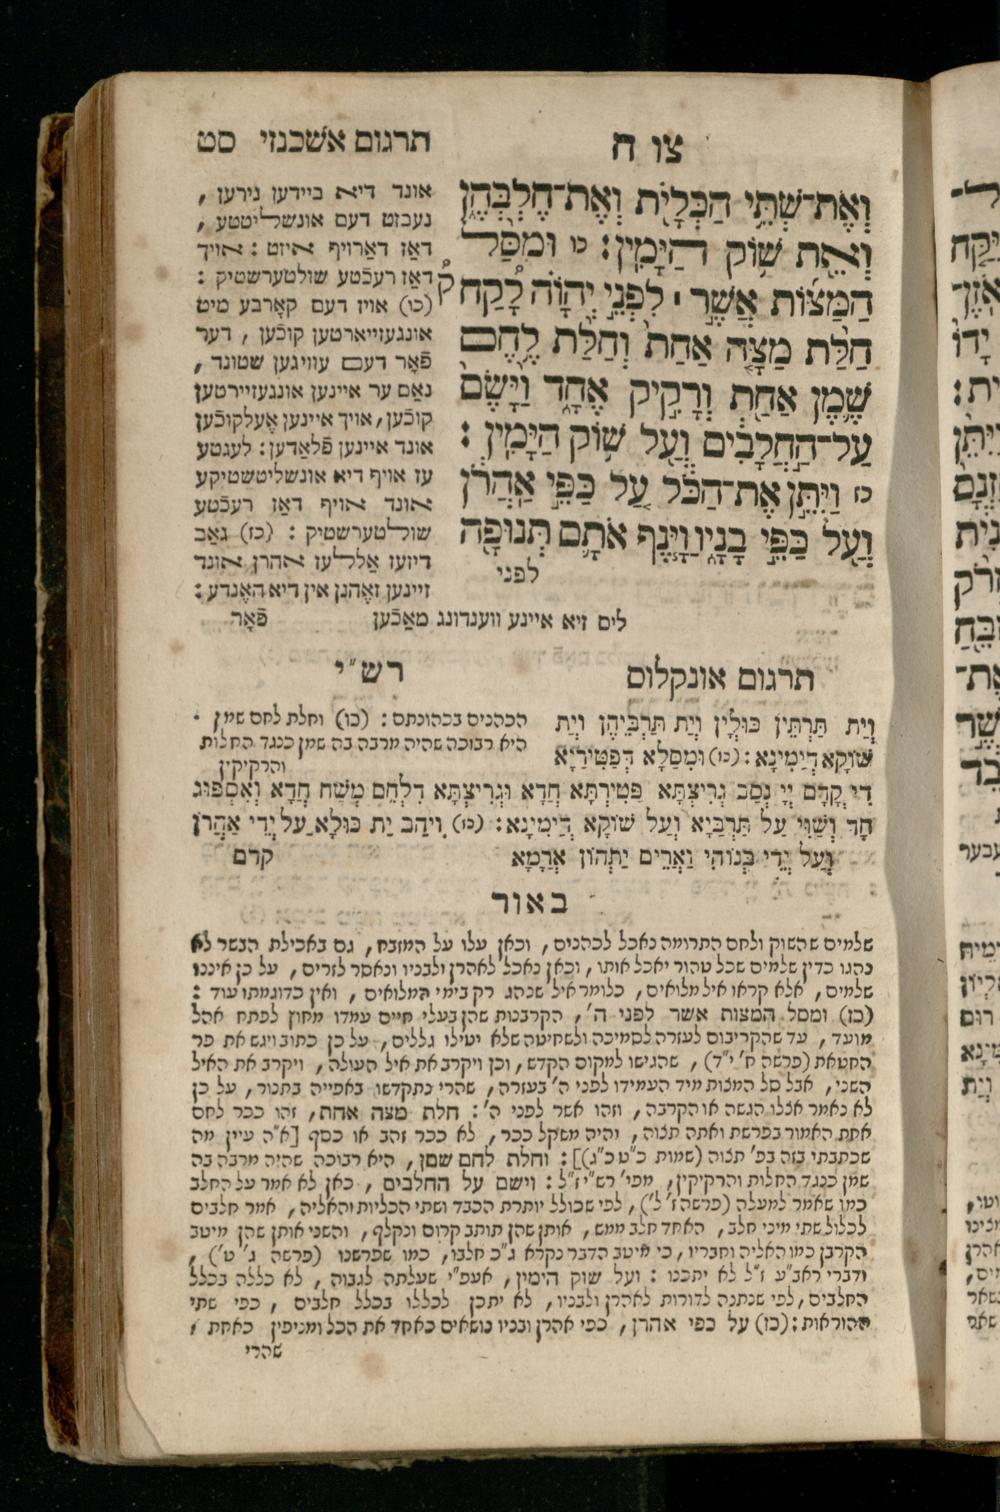 צו ח
תרגום אשכנזי סט
וְאֶת־שְׁתֵּי הַכְּלָיֹת וְאֶת־חֶלְבְּהֶן
וְאֵת שׁוֹק הַיָּמִין: כו וּמִסַּל
הַמַּצּוֹת אֲשֶׁר ׀ לִפְנֵי יְהוָֹה לָקַח
חַלַּת מַצָּה אַחַת וְחַלַּת לֶחֶם
שֶׁמֶן אַחַת וְרָקִיק אֶחָד וַיָּשֶׂם
עַל־הַחֲלָבִים וְעַל שׁוֹק הַיָּמִין:
כז וַיִּתֵּן אֶת־הַכֹּל עַל כַּפֵּי אַהֲרֹן
וְעַל כַּפֵּי בָנָיו וַיָּנֶף אֹתָם תְּנוּפָה
לפני
אונד דיא ביידען נירען,
נעבזט דעם אונשליטטע,
דאז דארויף איזט: אויך
דאז רעכטע שולטערשטיק:
(כו) אויז דעם קארבע מיט
אונגעזייארטען קוכען, דער
פאר דעם עוויגען שטונד,
נאם ער איינען אונגעזיירטען
קוכען, אויך איינען אָעלקוכען
אונד איינען פלאדען: לעגטע
עז אויף דיא אונשליטשטיקע
אונד אויף דאז רעכטע
שולטערשטיק: (כז) גאב
דיזעז אללעז אהרן אונד
זיינען זאָהנן אין דיא האָנדע:
ליס זיא איינע ווענדונג מאכען פאָר
תרגום אונקלוס
וְיַת תַּרְתֵּין כּוּלְיָן וְיַת תַּרְבֵּיהֶן וְיַת
שׁוֹקָא דְיַמִּינָא: (כו) וּמִסַּלָּא דְפַטִּירַיָּא
דִּי קֳדָם יְיָ נְסַב גְּרִיצְתָּא פַּטִּירְתָּא חֲדָא וּגְרִיצְתָּא דִלְחֵם מְשַׁח חֲדָא וְאִסְפּוֹג
חָד וְשַׁוִּי עַל תַּרְבַּיָּא וְעַל שׁוֹקָא דְּיַמִּינָא: (כז) וִיהַב יַת כּוּלָּא עַל יְדֵי אַהֲרֹן
וְעַל יְדֵי בְּנוֹהִי וַאֲרֵים יַתְהוֹן אֲרָמָא קדם
רש״י
הכהנים בכהונתם: (כו) וחלת לחם שמן.
היא רבוכה שהיה מרבה בה שמן כנגד החלות
והרקיקין
באור
שלמים שהשוק ולחם התרומה נאכל לכהנים, וכאן עלו על המזבח, גם באכילת הבשר לא
נהגו כדין שלמים שכל טהור יאכל אותו, וכאן נאכל לאהרן ולבניו ונאסר לזרים, על כן איננו
שלמים, אלא קראו איל מלואים, כלומר איל שנהג רק בימי המלואים, ואין כדוגמתו עוד:
(כו) ומסל המצות אשר לפני ה', הקרבנות שהן בעלי חיים עמדו מחוץ לפתח אהל
מועד, עד שהקריבום לעזרה לסמיכה ולשחיטה שלא יטילו גללים, על כן כתוב ויגש את פר
החטאת (פרשה ח' י״ד), שהגישו למקום הקדש, וכן ויקרב את איל העולה, ויקרב את האיל
השני, אבל סל המצות מיד העמידו לפני ה' בעזרה, שהרי נתקדשו באפייה בתנור, על כן
לא נאמר אצלו הגשה או הקרבה, וזהו אשר לפני ה': חלת מצה אחת, זהו ככר לחם
אחת האמור בפרשת ואתה תצוה, והיה משקל ככר, לא ככר זהב או כסף [א״ה עיין מה
שכתבתי בזה בפ' תצוה (שמות כ״ט כ״ג)]: וחלת לחם שמן, היא רבוכה שהיה מרבה בה
שמן כנגד החלות והרקיקין, מפי' רש״י ז״ל: וישם על החלבים, כאן לא אמר על החלב
כמו שאמר למעלה (פרשה ז' ל'), לפי שכולל יותרת הכבד ושתי הכליות והאליה, אמר חלבים
לכלול שתי מיני חלב, האחד חלב ממש, אותן שהן תותב קרום ונקלף, והשני אותן שהן מיטב
הקרבן כמו האליה וחבריו, כי מיטב הדבר נקרא ג״כ חלבו, כמו שפרשנו (פרשה ג' ט'),
ודברי ראב״ע ז״ל לא יתכנו: ועל שוק הימין, אעפ״י שעלתה לגבוה, לא כללה בכלל
החלבים, לפי שנתנה לדורות לאהרן ולבניו, לא יתכן לכללו בכלל חלבים, כפי שתי
ההוראות: (כז) על כפי אהרן, כפי אהרן ובניו נושאים כאחד את הכל ומניפין כאחת,
שהרי